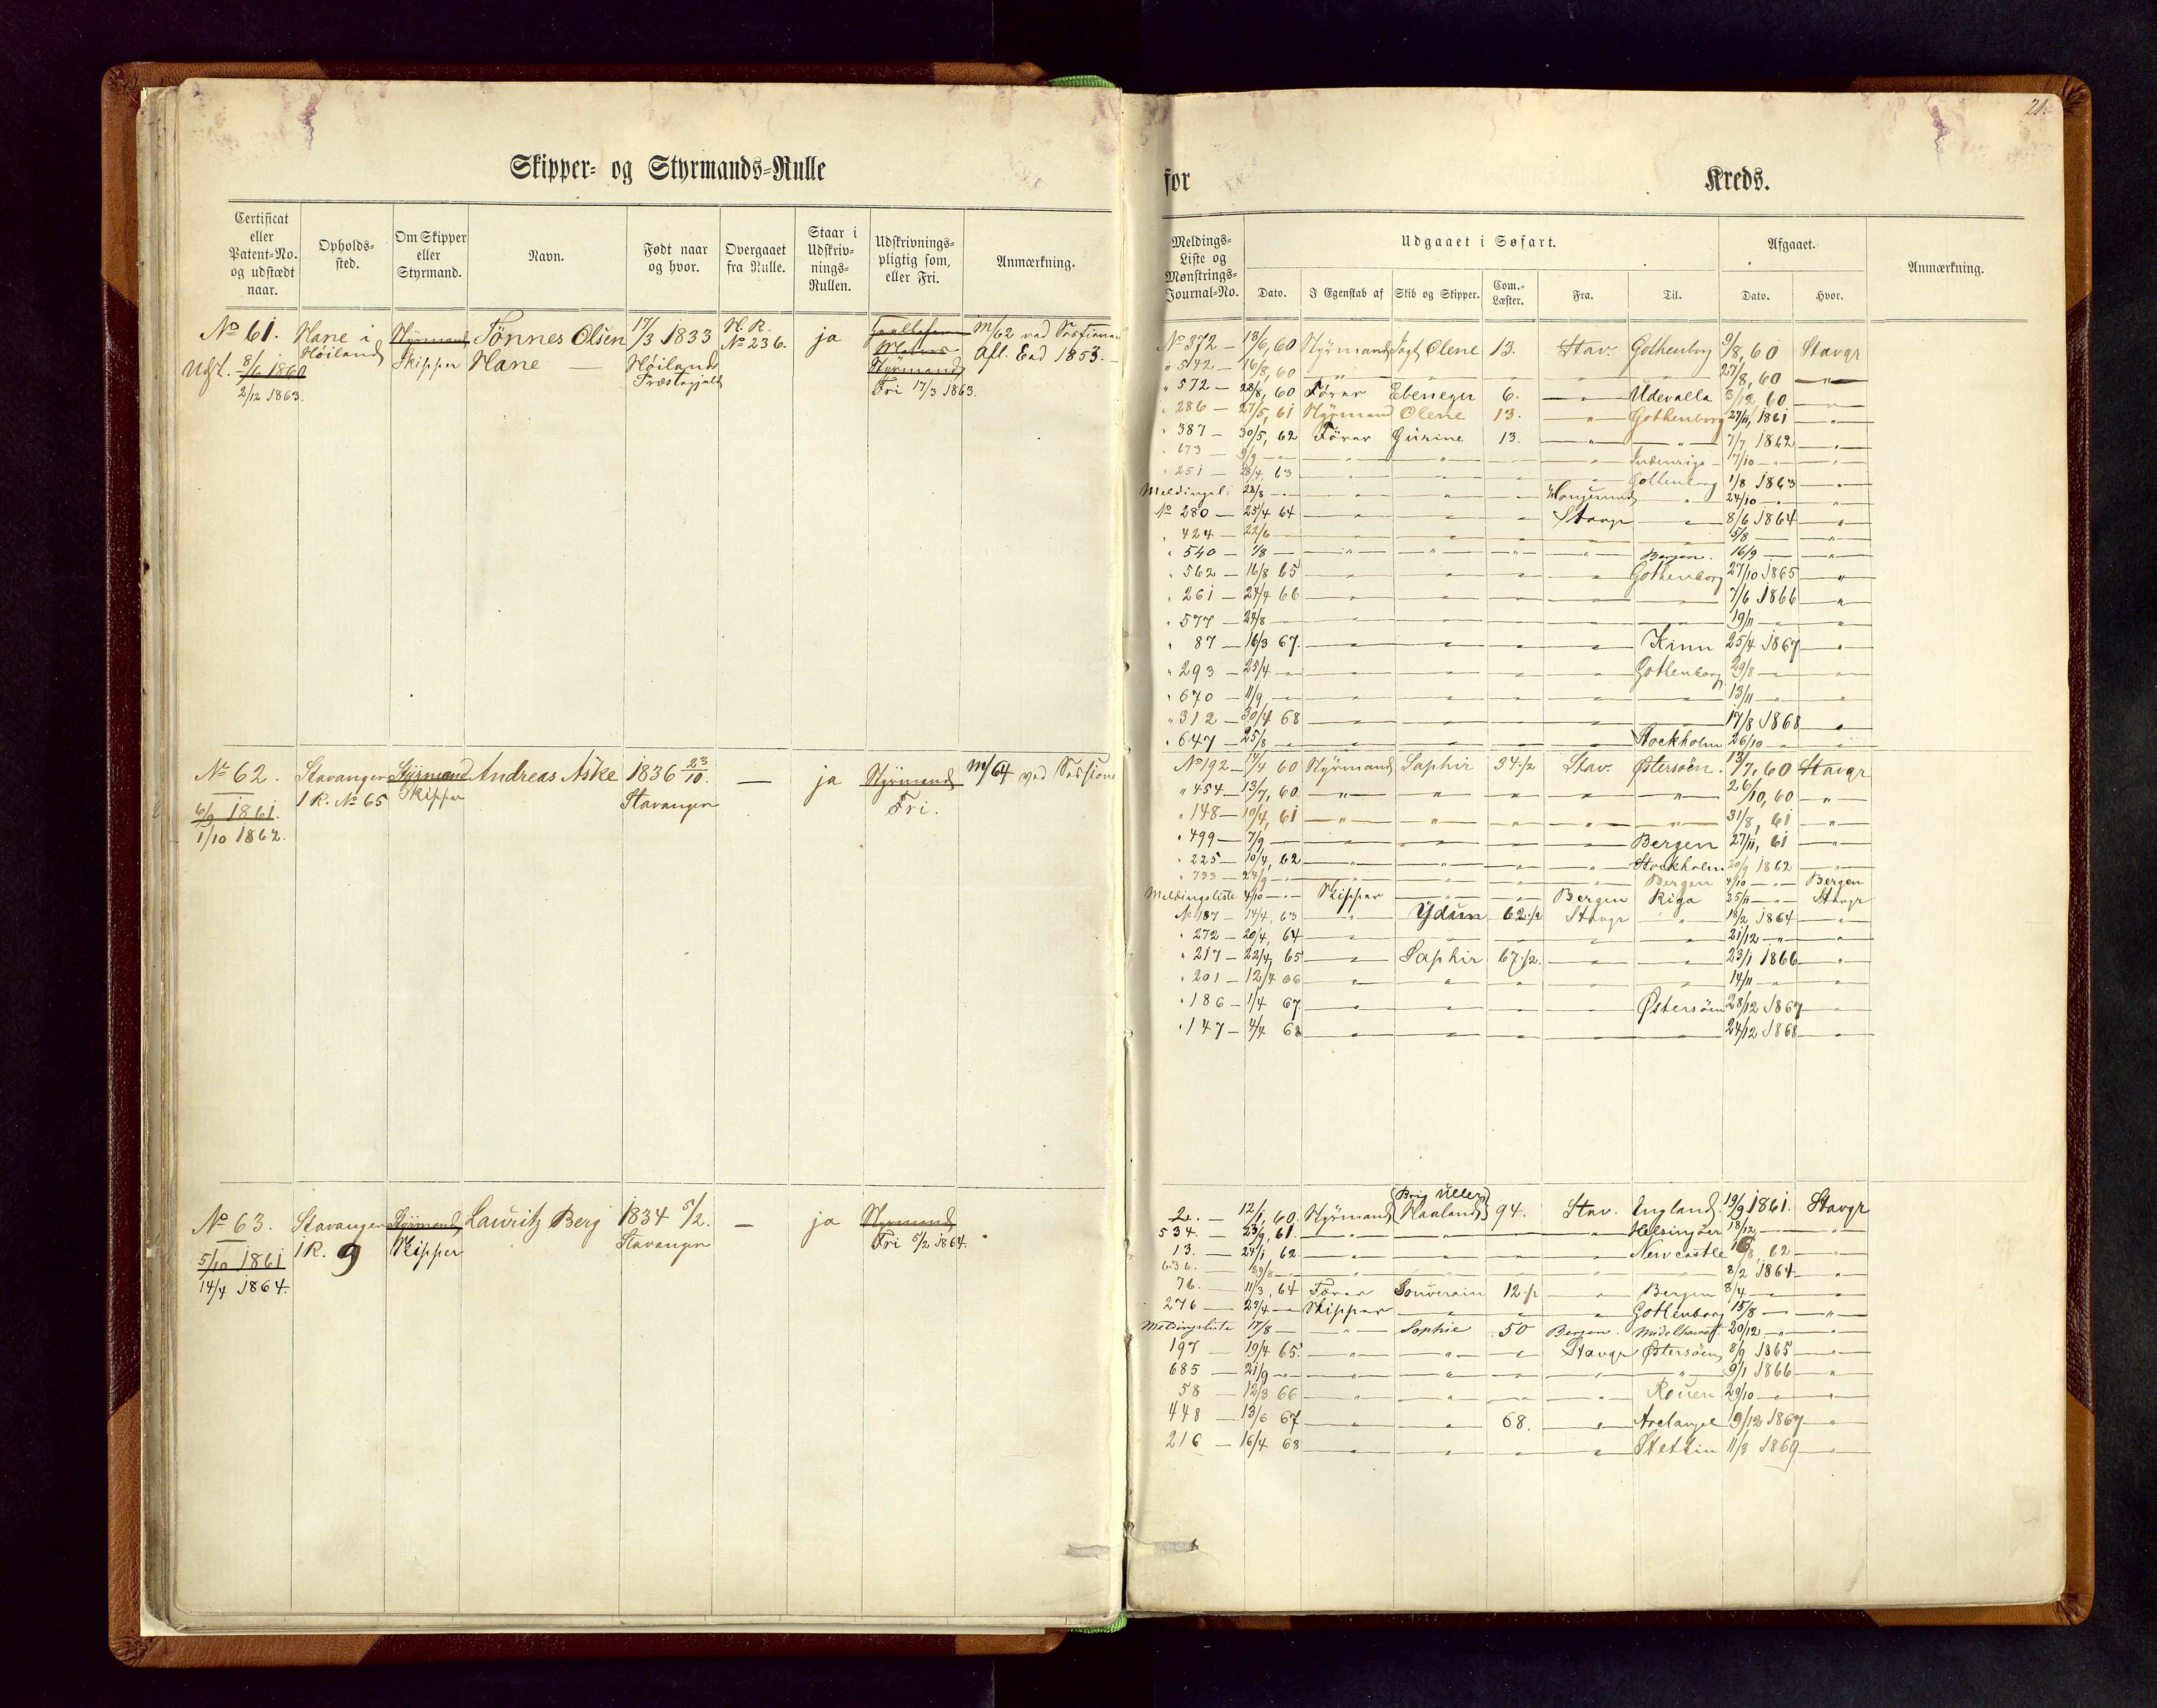 21.
Skipper- og Styrmands-Rulle
for Kreds.
Certificat eller Patent-No. og udstædt naar.
Opholds-sted.
Om Skipper eller Styrmand.
Navn.
Født naar og hvor.
Overgaaet fra Rulle.
Staar i Udskriv-nings-Rullen.
Udskrivnings-pligtig som, eller Fri.
Anmærkning.
Meldings-Liste og Mønstrings-Journal-No.
Udgaaet i Søfart.
Dato.
I Egenskab af
Skib og Skipper.
Com.-Læster.
Fra.
Til.
Afgaaet.
Dato.
Hvor.
Anmærkning.
No 61. Hane i Styrmand Tønnes Olsen 17/3 1833 H. R. ja m/62 ved Sessionen
Udst. 8/6 1860 Høiland Skipper Hane — Høiland No 236. Styrmand Afl. Ead 1853.
2/12 1863. Præstegjæld Fri 17/3 1863.
No 372 — 13/6, 60 Styrmand Jagt Olene 13. Stav. Gothenborg 9/8, 60 Stavgr
" 542 — 16/8, 60 " " " " " 27/8, 60 "
" 572 — 28/8, 60 Fører Ebenezer 6. " Udevalla 3/12 60 "
" 286 — 27/5, 61 Styrmand Olene 13. " Gothenborg 27/11, 1861 "
" 387 — 30/5, 62 Fører Gurine 13. " " 7/7 1862 "
" 673 — 9/9 — " " " " " Indenrigs 17/10 — "
" 251 — 28/4, 63 " " " " Gothenborg 1/8 1863 "
Meldingsl. 28/8 — " " " " " 24/10 — "
No 280 — 25/4 64 " " " Stavgr " 8/6 1864 "
" 424 — 22/6 — " " " " " 5/8 — "
" 540 — 1/8 — " " " " Bergen. 16/9 — "
" 562 — 16/8 65 " " " " Gothenborg 27/10 1865 "
" 261 — 24/4 66 " " " " " 7/6 1866 "
" 577 — 24/8 — " " " " " 19/11 — "
" 87 — 16/3 67. " " " " Kinn 25/4 1867 "
" 293 — 25/4 — " " " " Gothenborg 29/8 — "
" 670 — 11/9 — " " " " " 13/11 — "
" 312 — 30/4 68 " " " " " 17/8 1868 "
" 647 — 25/8 — " " " " Stockholm 26/10 — "
No 62. Stavanger Styrmand Andreas Aske 1836 23/10. — ja Styrmand m/64 ved Session
1 R. No 65 Skipper Stavanger Fri.
6/9 1861.
1/10 1862.
No 192 — 17/4 60 Styrmand Saphir 34 1/2 Stav. Østersøen. 13/7, 60 Stavgr
" 454 — 13/7, 60 " " " " " 26/10, 60 "
" 148 — 19/4, 61 " " " " " 31/8, 61 "
" 499 — 7/9 — " " " " Bergen 27/11, 61 "
" 225 — 10/4, 62 " " " " Stockholm 20/9 1862 "
" 733 — 24/9 — " " " " Bergen 4/10 — Bergen
Meldingsliste 4/10 — Skipper " " Bergen Riga 25/11 — Stavgr
No 187 — 14/4, 63 " Ydun 62 1/2 Stavgr " 18/2 1864 "
" 272 — 20/4, 64 " " " " " 21/12 — "
" 217 — 22/4, 65 " Saphir 67 1/2. " " 23/1 1866 "
" 201 — 12/4 66 " " " " " 14/11 — "
" 186 — 1/4 67 " " " " Østersøen 28/12 1867 "
" 147 — 4/4 68 " " " " " 24/12 1868 "
No 63. Stavanger Styrmand Lauritz Berg 1834 5/2. — ja Styrmand
1 R. 9 Skipper Stavanger Fri 5/2 1864.
5/10 1861
14/4 1864.
2. — 12/1, 60. Styrmand (Brig Uller) Haaland 94. Stav. England. 19/9 1861. Stavgr
534. — 23/9, 61. " " " " Helsingøer 18/12 — "
13. — 24/1 62 " " " " Newcastle 16/8, 62 "
636. — 29/8 — " " " " " 8/2 1864 "
76. — 11/3, 64 Fører Souverain 12 1/2 " Bergen 8/4 — "
276 — 23/4 — Skipper " " " Gothenborg 15/8 — "
Meldingsliste 17/8 — " Sophie 50 Bergen. Middelhavet. 20/12 — "
197 — 19/4 65. " " " Stavgr Østersøen 8/9 1865 "
685 — 21/9 — " " " " " 9/1 1866 "
58 — 12/3 66 " " " " Rouen 29/10 — "
448 — 13/6 67 " " 68. " Archangel 9/12 1867 "
216 — 16/4 68 " " " " Stettin 11/3 1869 "